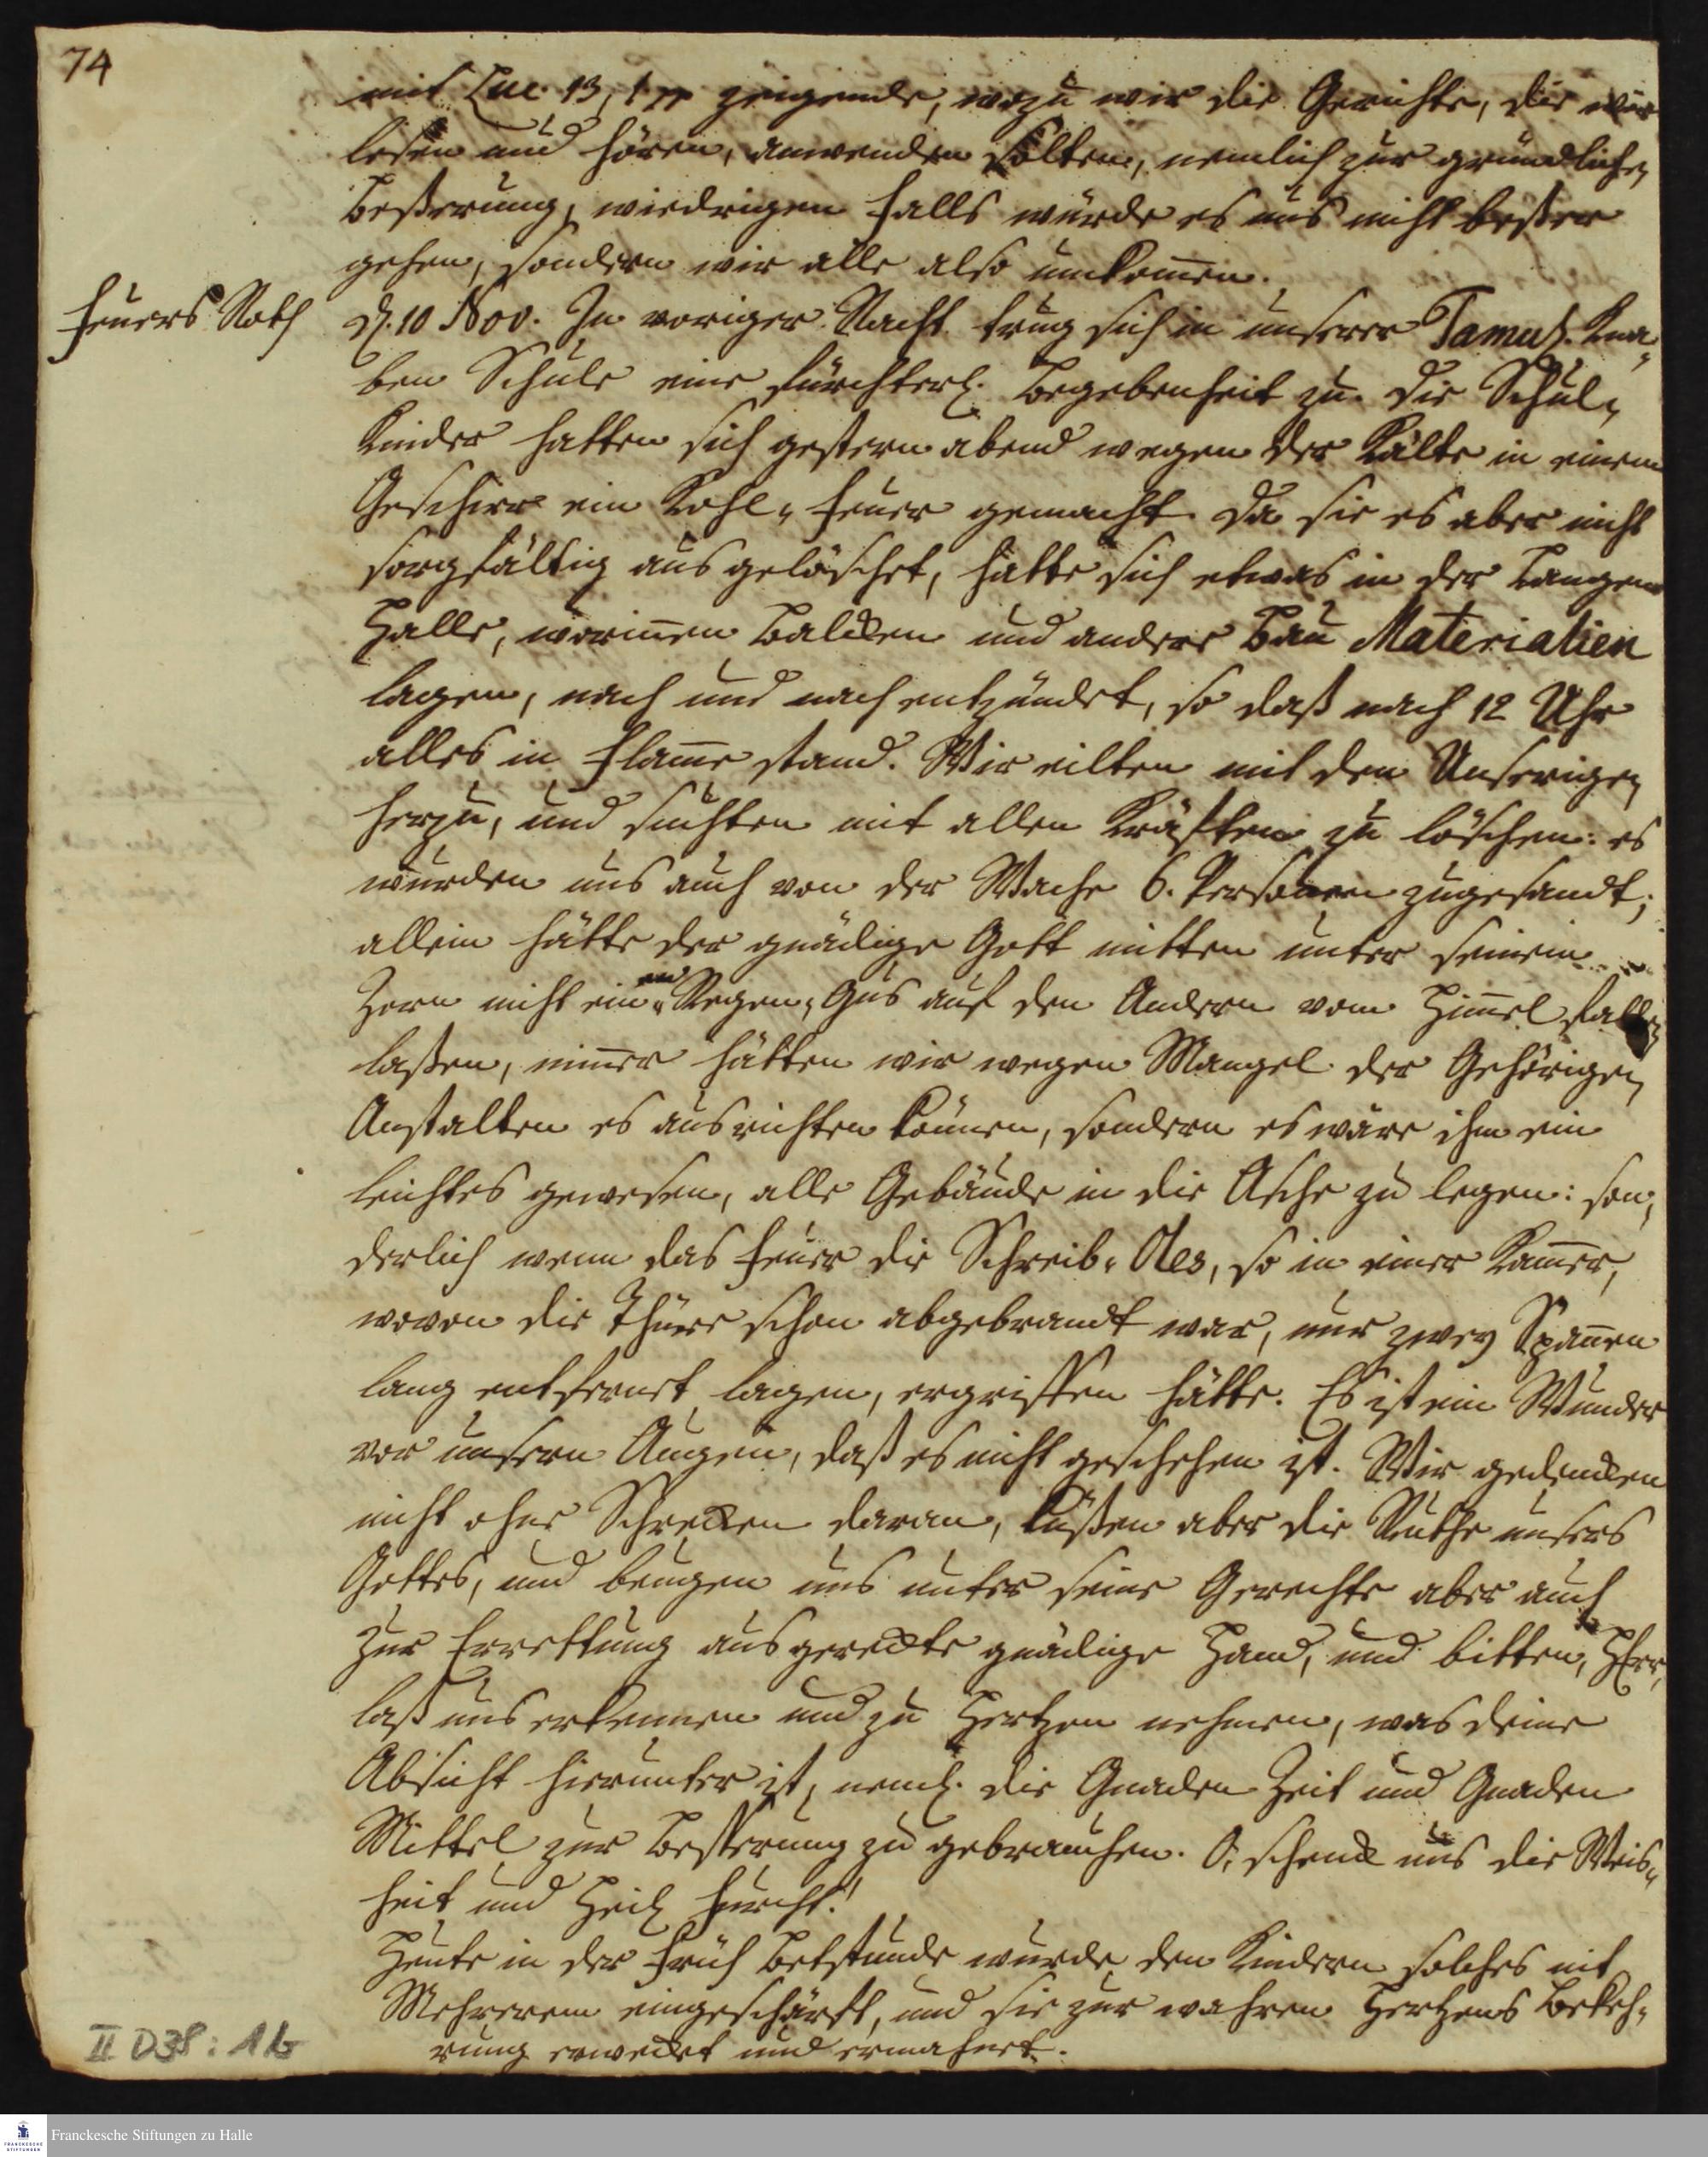 74
mit Luc. 13, 1 pp zeigende, wozu wir die Gerichte, die wir
lesen und hören, anwenden solten, nemlich zur gründlichen
Beßerung, wiedrigen falls würde es uns nicht beßer
gehen, sondern wir alle also umkom̄en.
Feuers Noth
d. 10 Nov. In voriger Nacht trug sich in unserer Tamul. Kna-
ben Schule eine fürchterl. Begebenheit zu. Die Schul-
Kinder hatten sich gestern abend wegen der Kälte in einem
Geschirr ein Kohl-Feuer gemacht. Da sie es aber nicht
sorgfältig ausgelöschet, hatte sich etwas in der Langen
Halle, worin̄en Balcken und andere Bau Materialien
lagen, nach und nach entzündet, so daß nach 12 Uhr
alles in Flam̄e stand. Wir eilten mit den Unserigen
herzu, und suchten mit allen Kräften zu löschen: es
wurden uns auch von der Wache 6. Personen zugesandt;
allein hätte der gnädige Gott mitten unter seinem
Zorn nicht einen Regen-Gus auf den Andern vom Him̄el fallen
laßen, nim̄er hätten wir wegen Mangel der Gehörigen
Anstalten es ausrichten können, sondern es wäre ihm ein
leichtes gewesen, alle Gebäude in die Asche zu legen: son-
derlich wenn das Feuer die Schreib-Oles, so in einer Kam̄er,
wovon die Thüre schon abgebrandt war, nur zwey Span̄en
lang entfernet lagen, ergriffen hätte. Es ist ein Wunder
vor unsern Augen, daß es nicht geschehen ist. Wir gedencken
nicht ohne Schrecken daran, küßen aber die Ruthe unsers
Gottes, und beugen uns unter seine Gerechte aber auch
zur Errettung ausgereckte gnädige Hand, und bitten, HErr,
laß uns erkennen und zu Hertzen nehmen, was deine
Absicht hierunter ist, neml. die Gnaden Zeit und Gnaden
Mittel zur Besserung zu gebrauchen. O, schenck uns die Weis-
heit und Heil. Furcht!
Heute in der Früh Betstunde wurde den Kindern solches mit
Mehrerem eingeschärft, und sie zur wahren Hertzens Bekeh-
rung erwecket und ermahnet.
II D38: 16
Franckesche Stiftungen zu Halle